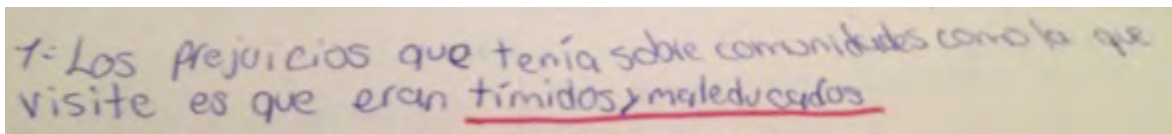 1-Los prejuicios que tenía sobre comunidades como la que
visite es que eran tímidos y maleducados